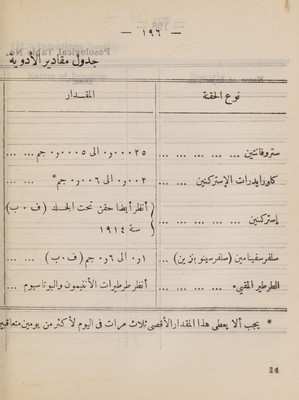 — ١٩٦ —
Posological Table No.
جدول مقادير الأدوية
نوع الحقنة
المقــدار
ستروفانتين ... ... ... ...
٠٫٠٠٠٢٥ الى ٠٫٠٠٥ جم ... ...
كلورايدرات الإستركنين ... ...
٠٫٠٠٢ الى ٠٫٠٠٦ جم* ... ...
إستركنين ... ... ... ...
أنظر أيضا حقن تحت الجلد (ف ٠ ب)
سنة ١٩١٤
سلفرسفينامين (سلفرسينو بنزين) ...
٠٫١ الى ٠٫٦ جم (ف ٠ ب) ... ...
الطرطير المقيء ... ... ... ...
أنظر طرطيرات الأنتيمون والبوتاسيوم ...
* يجب ألا يعطى هذا المقدار الأقصى ثلاث مرات فى اليوم لأكثر من يومين متعاقبين
24